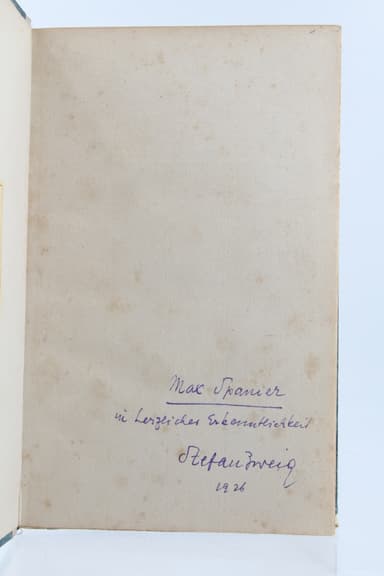 Max Spanier
in herzlicher Erkenntlichkeit
Stefan Zweig
1926